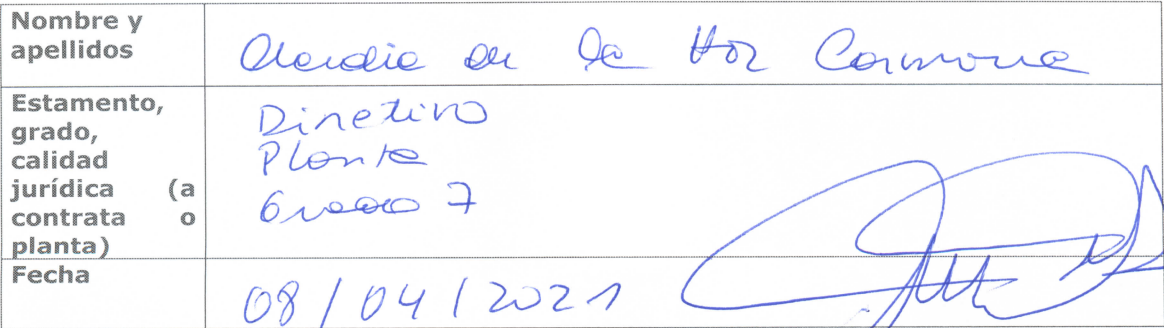 Nombre y
apellidos
Claudia de la Hoz Carmona
Estamento,
grado,
calidad
jurídica (a
contrata o
planta)
Directivo
Planta
Grado 7
Fecha
08/04/2021